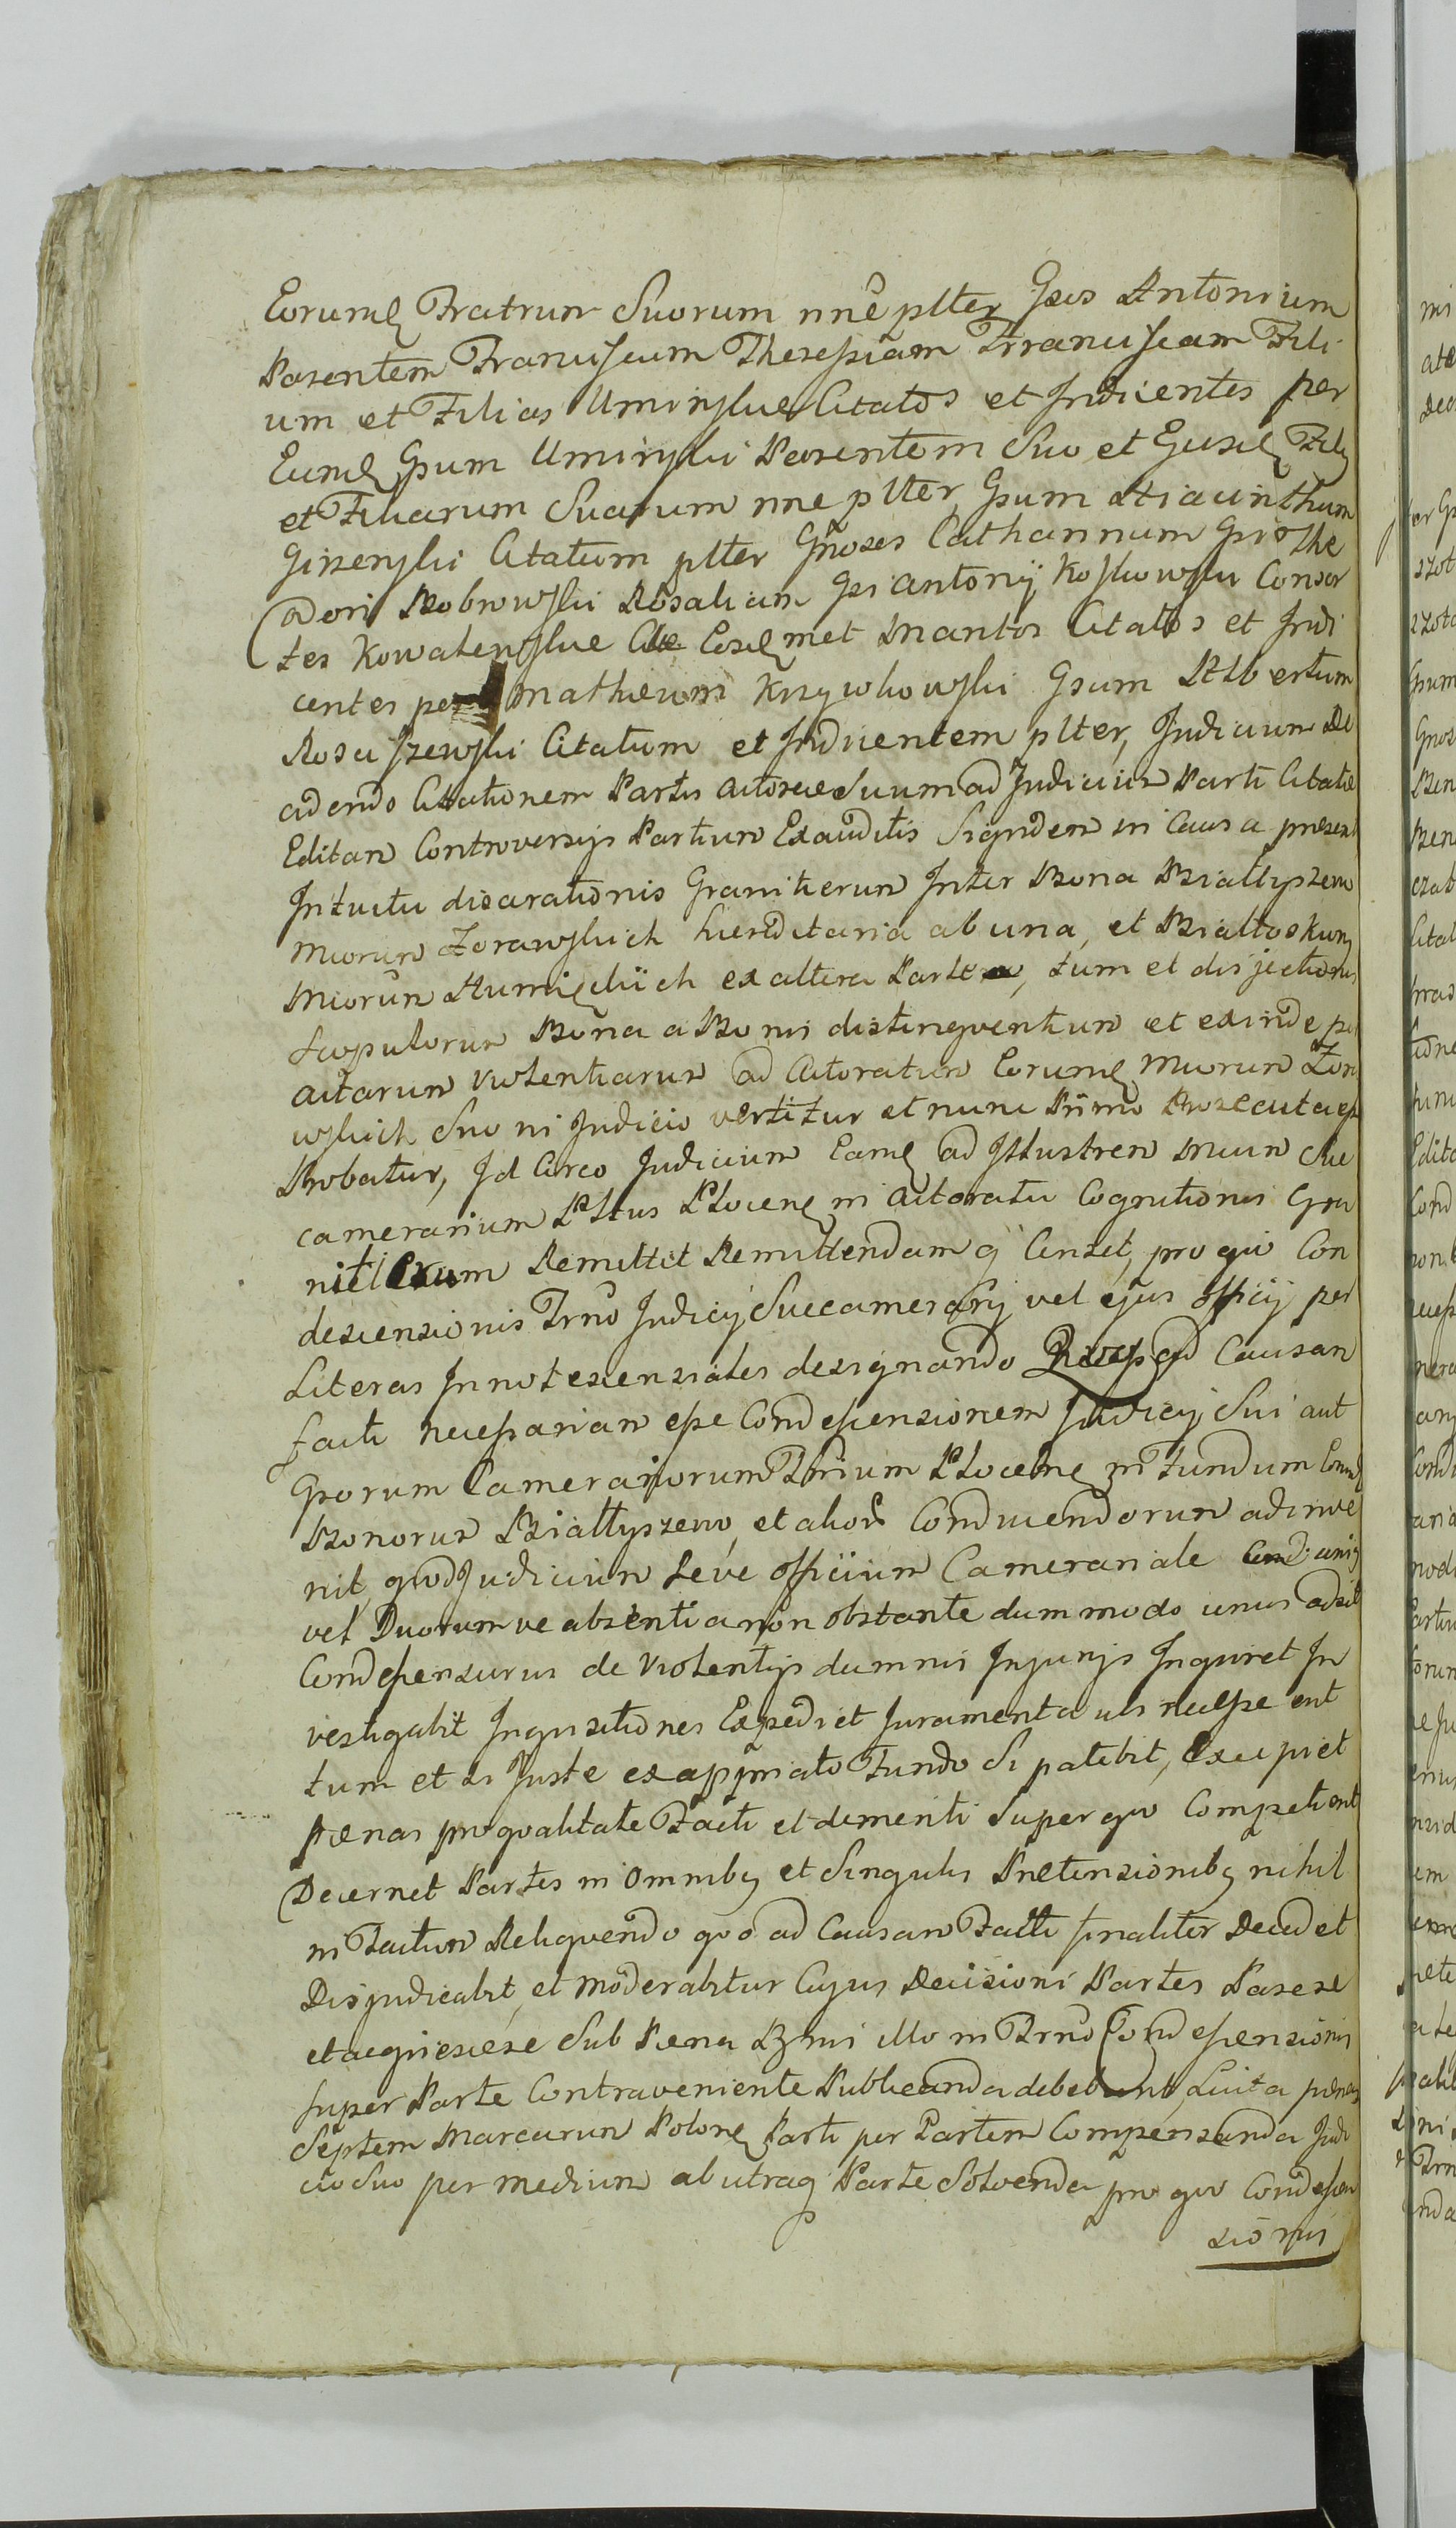 Eorumq Fratrum Suorum nne plter Gsos Antonium
Parentem Franciscum Theressiam Franciscam Fili
um et Filias Uminskie Citatos et Judicentes per
Eumq Gsum Uminski Parentem Suo et Ejusq Filij
et Filiarum Suarum nne plter Gsum Hiacinthum
Giżenski Citatum plter Gñoses Catharinam Gsi The
odori Bobrowski Rosaliam Gsi Antonij Koskowski Consor
tes Kowalenskie Eosq met Maritos Citatos et Judi
centes per Matheum Krzywkowski Gsum Albertum
Rosciszewski Citatum et Judicentem plter, Judicium Re
cidendo Citationem Partis Actoreae Suum ad Judicium Parti Citatae
Editam Controversijs Partium Exauditis Siquidem in Causa praesenti
Intuitu disparationis Granicierum Inter Bona Białłyszewo
Mcorum Zorawskich hereditaria ab una, et Białłoskury
Mcorum Humięckich ex altera Parte, tum et disjectionis
Scopulorum Bona a Bonis distinqventium et exinde p
actarum violentiarum ad Actoratum Eorumq Mcorum Zora
wskich Suo in Judicio vertitur et nunc Primo Prosecuta esse
Probatur, Id Circo Judicium Eamq ad Illustrem Mcum Suc
camerarium Pltus Plocenq in Actoratu Cognitionis Gra
nicierum Remittit Remittendamq Censet, pro quo Con
descensionis Trno Judicij Succamerarij vel ejus officij per
Literas Innotescensiales designando Qvo ad Causam
facti necessariam esse Condescensionem Judicij Sui aut
Gsorum Camerariorum Trrium Plocenq in Fundum Eorumq
Bonorum Białłyszewo et alior Conducendorum adinve
nit, quod Judicium Seve officium Camerariale unius
vel Duorum ve absentia non obstante dummodo unus adsit
Condescensurus de Violentijs damnis Injurijs Inquiret In
vestigabit Inquisitiones Expediet Juramenta ubi necesse erit
tum et si Juste ex appñiato Fundo Si patebit, Excipiet
paenas pro qvalitate Facti et demeriti Super qvo Competierit
Decernet Partes in Omnibq et Singulis Praetensionibq nihil
in Factum Relinqvendo qvo ad Causam Facti finaliter Decidet
Disjudicabit, et Moderabitur Cujus Decisioni Partes Parere
et acquiescere Sub Paena Bmi illo in Trno Condescensionis
super Parte Contraveniente Publicanda debebunt, Luita paena
Septem Marcarum Polonq Parti per Partem Compensanda Judi
cio Suo per medium ab utraq Parte Solvenda pro quo Condescen
sionis